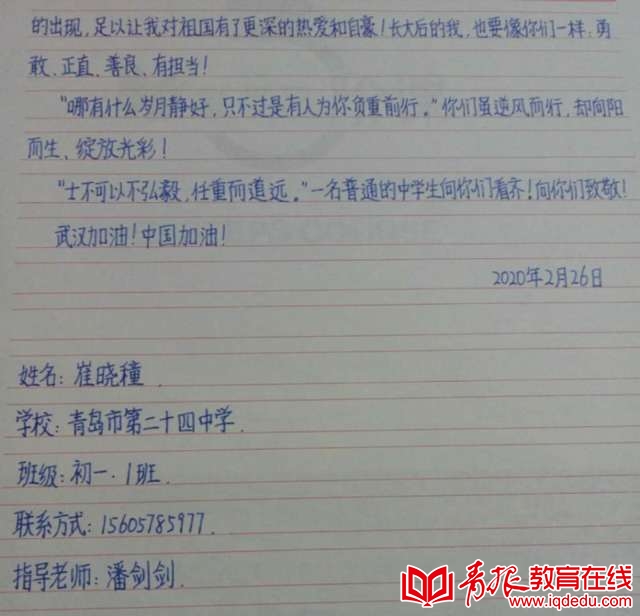 的出现，足以让我对祖国有了更深的热爱和自豪！长大后的我，也要像你们一样：勇
敢、正直、善良、有担当！
“哪有什么岁月静好，只不过是有人为你负重前行。”你们虽逆风而行，却向阳
而生、绽放光彩！
“士不可以不弘毅，任重而道远。”一名普通的中学生向你们看齐！向你们致敬！
武汉加油！中国加油！
2020年2月26日
姓名：崔晓穜
学校：青岛市第二十四中学.
班级：初一·1班.
联系方式：15605785977.
指导老师：潘剑剑.
青报教育在线
www.iqdedu.com